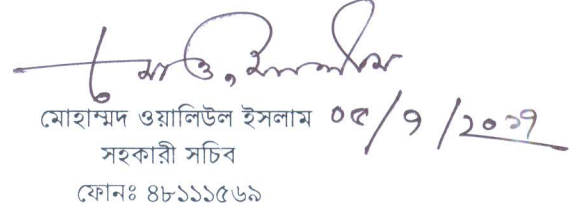 মোহাম্মদ ওয়ালিউল ইসলাম ০৫/৭/২০১৭
সহকারী সচিব
ফোনঃ ৪৮১১১৫৬৯